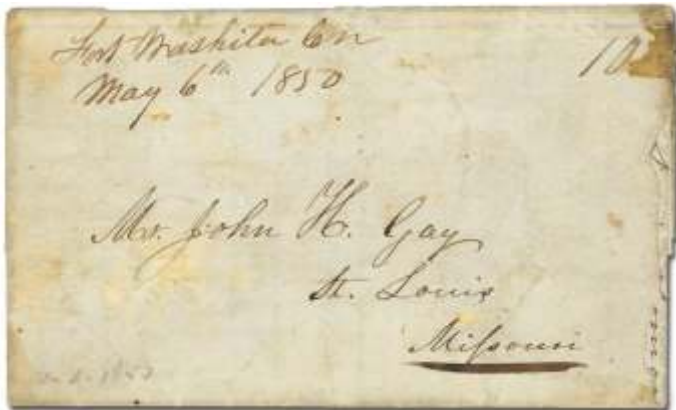 Fort Washita CN
May 6th 1850
10
Mr. John H. Gay
St. Louis
Missouri